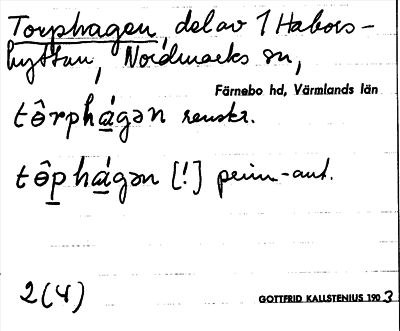 Torphagen, del av 1 Habors-
hyttan, Nordmarks sn,
Färnebo hd, Värmlands län
tôrphágən renskr.
tôphágən [!] prim-ant.
2(4)
GOTTFRID KALLSTENIUS 1903